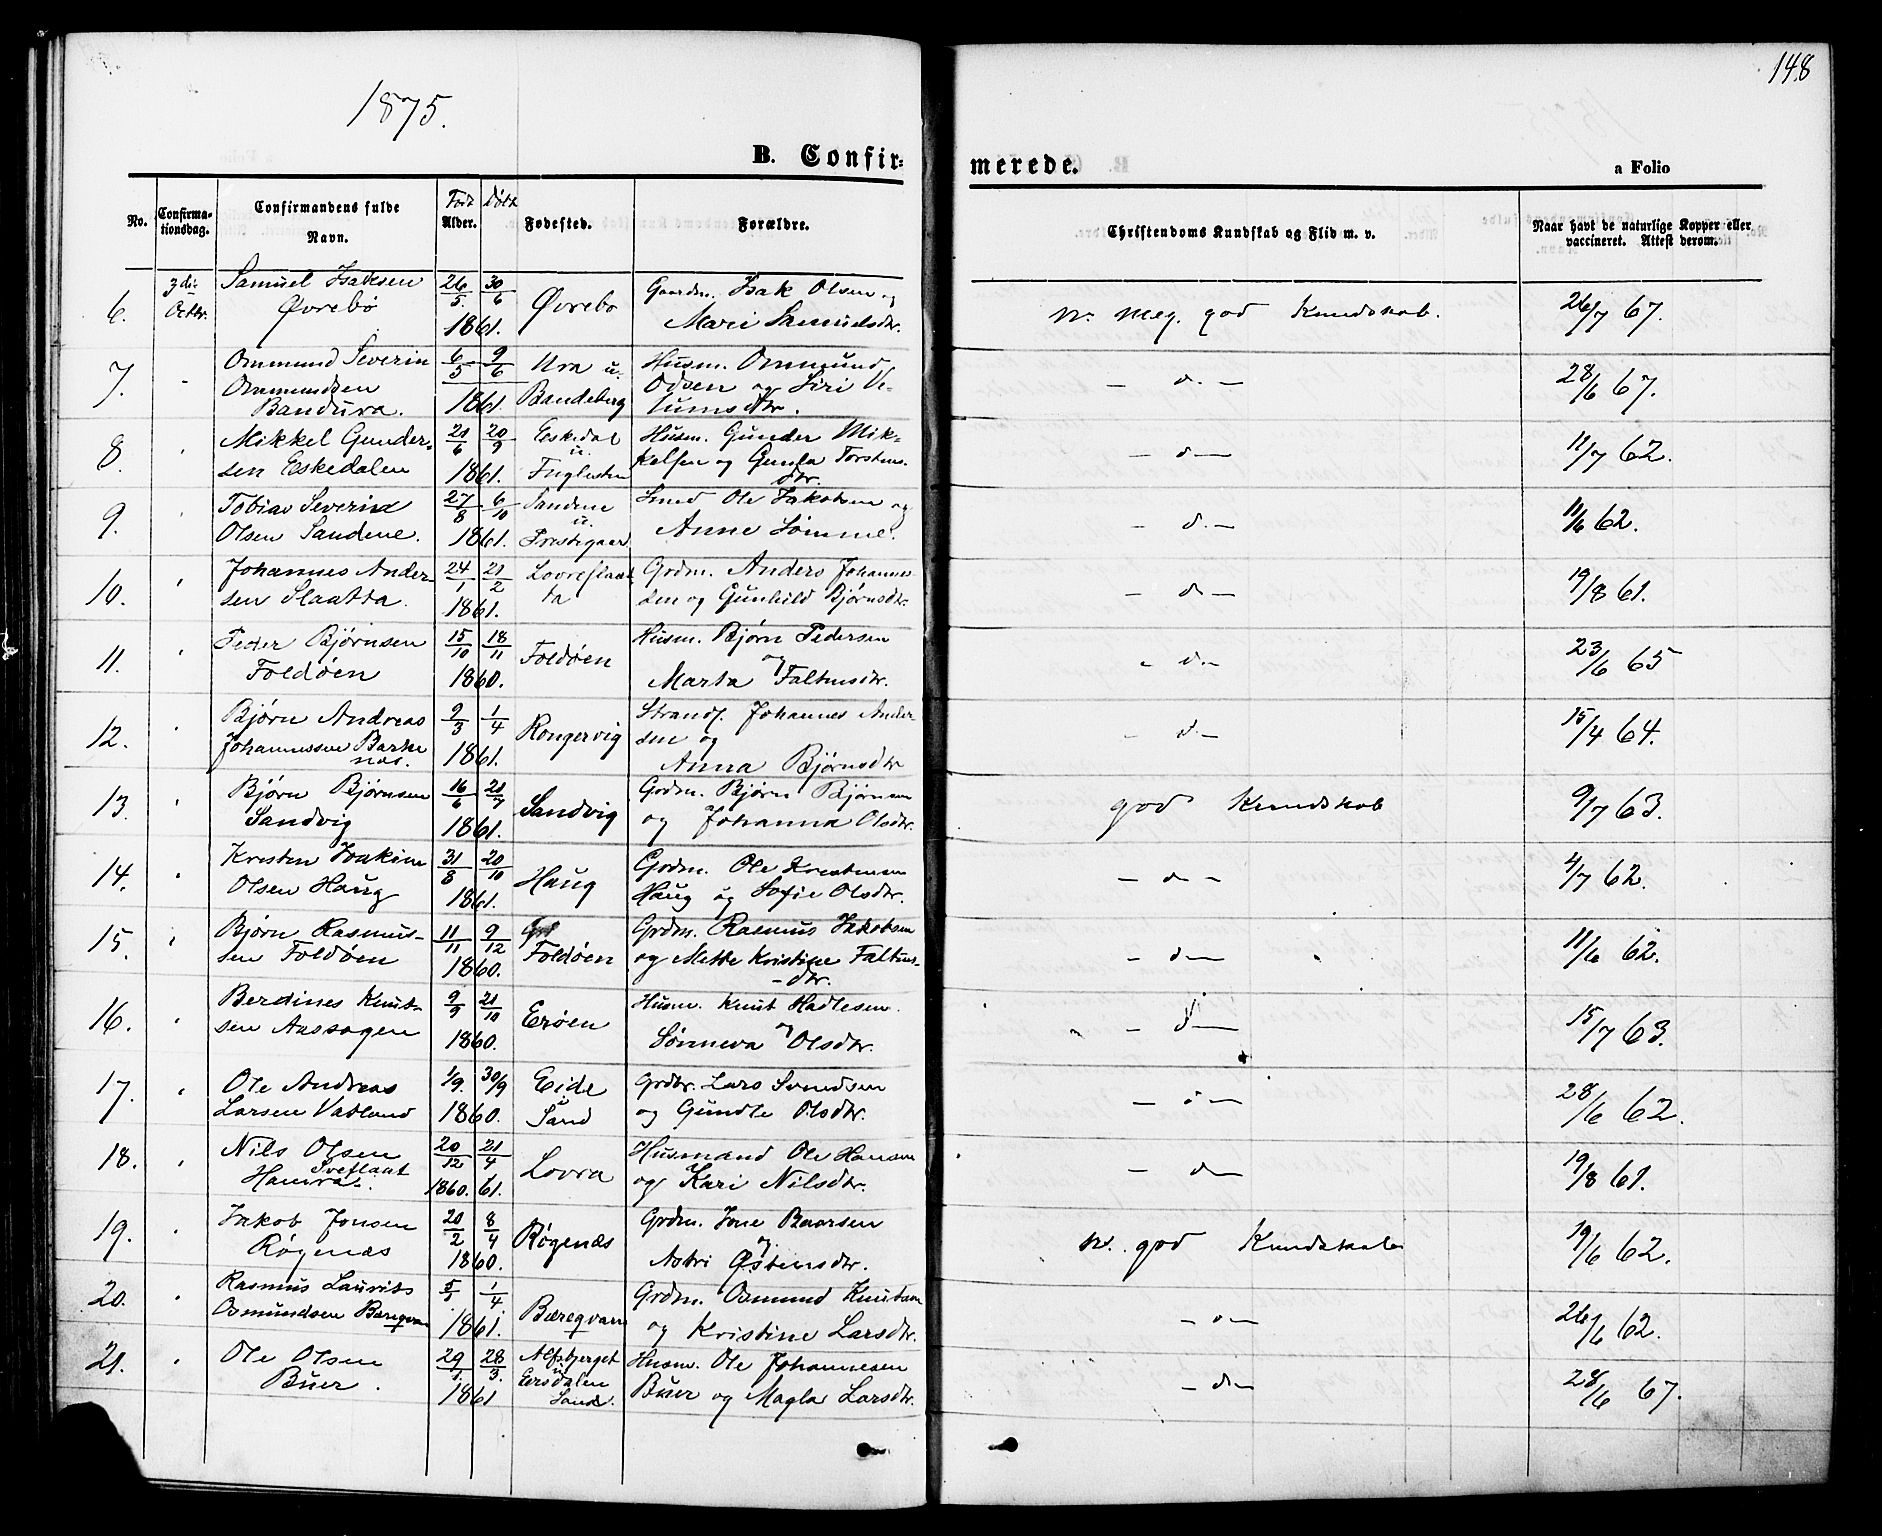 148
1875.
B. Confir-
merede.
a Folio
No.
Confirma-
tionsdag.
Confirmandens fulde
Navn.
Født
Alder.
Døbt
Fødested.
Forældre.
Christendoms Kundskab og Flid m. v.
Naar havt de naturlige Kopper eller
vaccineret. Attest derom.
6. 3die Octbr. Samuel Isaksen Øvrebø 26/5 30/6 1861. Øvrebø Gaardm. Isak Olsen og Marie Samuelsdtr. n. meg. god Kundskab. 26/7 67.
7. " Ommund Severin Ommundsen Bandura. 6/5 9/6 1861. Ura u. Bandeberg Husm. Ommund Odsen og Siri Ve-
tumsdtr. - d. - 28/6 67.
8. " Mikkel Gunder-
sen Eskedalen 21/6 20/9 1861. Eskedal u. Fuglesten Husm. Gunder Mik-
kelsen og Gunla Torstens.
dtr. - d - 11/7 62.
9. " Tobias Severin Olsen Sandene. 27/8 6/10 1861. Sandene u. Prestegaar. Smed Ole Jakobsen og Anne Sømme. - d. - 11/6 62.
10. " Johannes Ander-
sen Slaatta. 24/1 21/2 1861. Lovreslaat
ta Grdm. Anders Johannes-
sen og Gunhild Bjørnsdtr. - d - 19/8 61.
11. " Peder Bjørnsen Foldøen 15/10 18/11 1860. Foldøen Husm. Bjørn Pedersen og Marta Faltinsdtr. - d - 23/6 65
12. " Bjørn Andreas Johannessen Barke
nes. 2/3 1/4 1861. Rongervig Strands. Johannes Ander
sen og Anna Bjørnsdtr - d. - 15/4 64.
13. " Bjørn Bjørnsen Sandvig 16/6 21/7 1861. Sandvig Grdm. Bjørn Bjørnsen og Johanna Olsdtr. god Kundskab 9/7 63.
14. " Kristen Joakim Olsen Haug 31/8 20/10 1861. Haug Grdm. Ole Kristensen Haug og Sofie Olsdtr. - d - 4/7 62.
15. " Bjørn Rasmus-
sen Foldøen 11/11 9/12 1860. Foldøen Grdm. Rasmus Jakobsen og Mette Kristine Faltins-
dtr. - d - 11/6 62.
16. " Berdines Knut-
sen Aashagen 9/9 21/10 1860. Erøen Husm. Knut Hadlesen. og Sønneva Olsdtr. - d - 15/7 63.
17. " Ole Andreas Larsen Vatland 1/9. 30/9 1860. Eide u Sand Grdbr. Lars Svendsen og Gundle Olsdtr. - d - 28/6 62.
18. " Nils Olsen Sveflaat Hamra. 20/12 1860. 21/4 61. Lovra Husmand Ole Hansen og Kari Nilsdtr. - d - 19/8 61.
19. " Jakob Jonsen Røgenæs 20/2 8/4 1860. Røgenæs Grdm. Jone Baarsen og Astri Østensdtr. n. god Kundskab 19/6 62.
20. " Rasmus Laurits Osmundsen Bæreqvam 5/1 1/4 1861. Bæreqvam Grdm. Osmund Knutsen og Kristine Larsdtr. - d - 26/6 62.
21. " Ole Olsen Buer. 29/1. 28/3. 1861 Alfsbjerget u Eersdalen Sand. Husm. Ole Johannesen Buer og Magla Larsdtr. - d - 28/6 67.